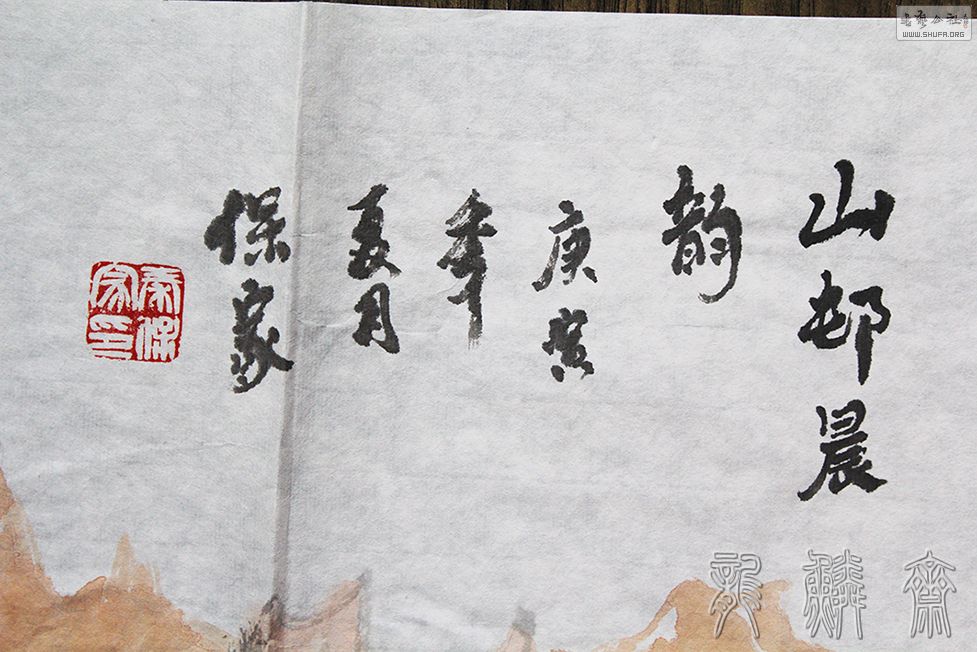 山邨晨
韵
庚寅
年
夏月
保家
秦保家印
龍麟齋
書法公社
WWW.SHUFA.ORG